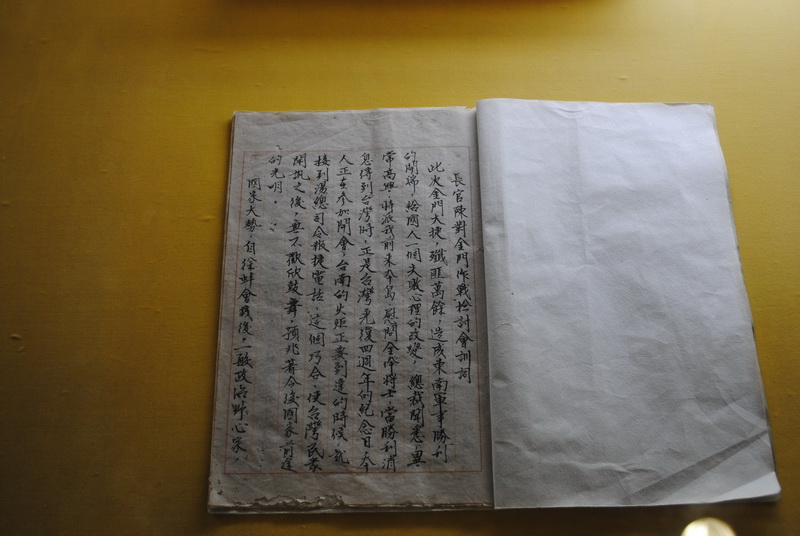 長官陳對金門作戰檢討會訓詞
此次金門大捷，殲匪萬餘，造成東南軍事勝利
的開端，給國人一個失敗心裡的改變，總裁聞悉，異
常高興，特派我前來本島，慰問全体將士，當勝利消
息得到台灣時，正是台灣光復四週年的紀念日，本
人正在參加開會，台南的火炬正要到達的時候，就
接到湯總司令報捷電話，這個巧合，使台灣民眾
聞訊之後，無不歡欣鼓舞，預兆著今後國家前途
的光明。
國家大勢，自徐蚌會戰後，一般政治野心家，